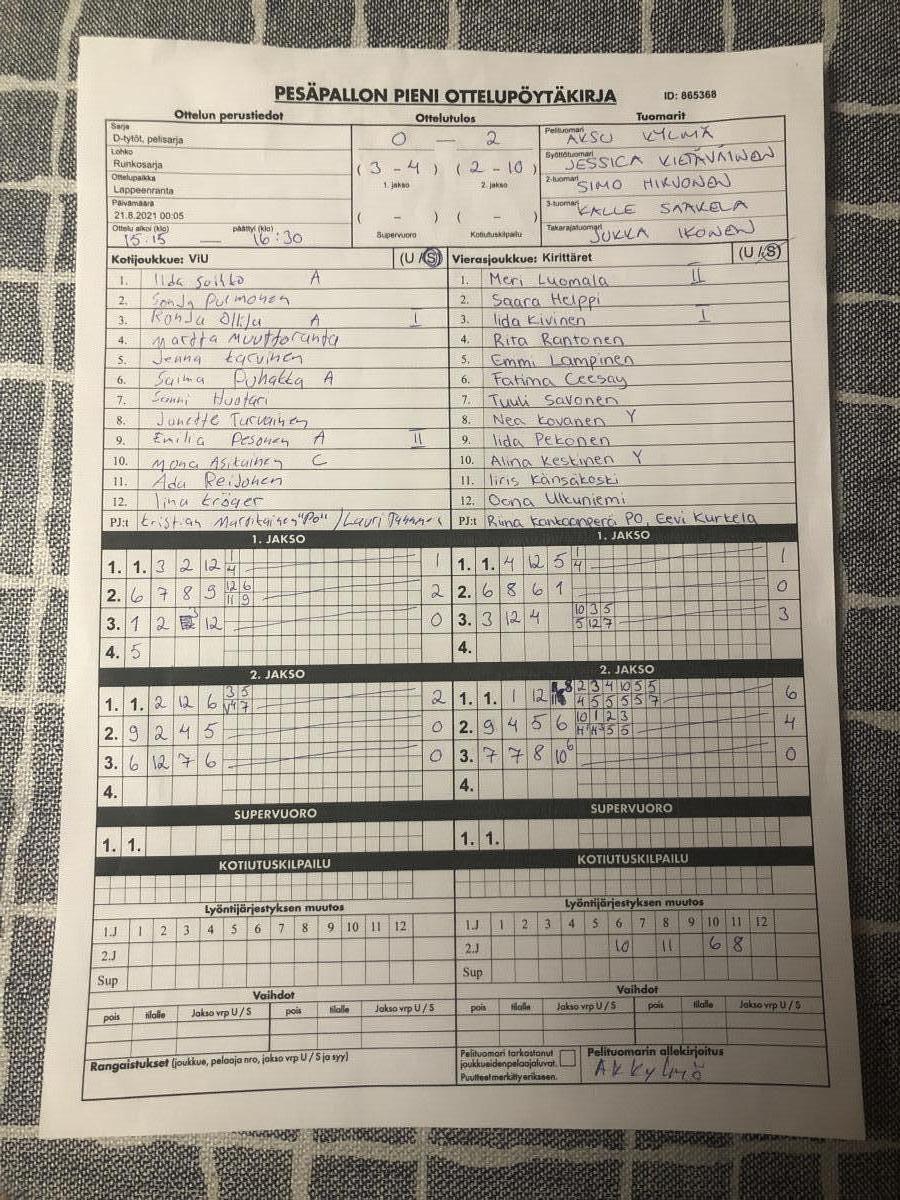 PESÄPALLON PIENI OTTELUPÖYTÄKIRJA ID: 865368
Ottelun perustiedot Ottelutulos Tuomarit
Sarja
D-tytöt, pelisarja
Lohko
Runkosarja
Ottelupaikka
Lappeenranta
Päivämäärä
21.8.2021 00:05
Ottelu alkoi (klo) päättyi (klo)
15:15 — 16:30
0 — 2
(3 - 4) (2 - 10)
1. jakso 2. jakso
( - ) ( - )
Supervuoro Kotiutuskilpailu
Pelituomari AKSU KYLMÄ
Syöttötuomari JESSICA KIETÄVÄINEN
2-tuomari SIMO HIRVONEN
3-tuomari KALLE SAAKELA
Takarajatuomari JUKKA IKONEN
Kotijoukkue: ViU (U/S) Vierasjoukkue: Kirittäret (U/S)
1. Iida Suikko A 1. Meri Luomala II
2. Sonja Purmonen 2. Saara Helppi
3. Ronja Ollila A I 3. Iida Kivinen I
4. Martta Muuttoranta 4. Rita Rantonen
5. Jenna Karvinen 5. Emmi Lampinen
6. Saima Puhakka A 6. Fatima Ceesay
7. Sanni Huotari 7. Tuuli Savonen
8. Janette Turvainen 8. Nea Kovanen Y
9. Emilia Pesonen A II 9. Iida Pekonen
10. Mona Asikainen C 10. Alina Keskinen Y
11. Ada Reijonen 11. Iiris Känsäkoski
12. Iina Kröger 12. Oona Ulkuniemi
PJ:t Kristian "Po" / Lauri PJ:t Riina Kankaanperä PO, Eevi Kurkela
1. JAKSO 1. JAKSO
1. 1. 3 2 12 1/4 1 1. 1. 4 12 5 1/4 1
2. 6 7 8 9 12 6 2 2. 6 8 6 1 0
11 9
3. 1 2 12 0 3. 3 12 4 10 3 5 3
5 12 7
4. 5 4.
2. JAKSO 2. JAKSO
1. 1. 2 12 6 3 5 2 1. 1. 1 12 8 2 3 4 10 5 5 6
4 7 4 5 5 5 5 7
2. 9 2 4 5 0 2. 9 4 5 6 10 1 2 3 4
5 5
3. 6 12 7 6 0 3. 7 7 8 10 6 0
4. 4.
SUPERVUORO SUPERVUORO
1. 1. 1. 1.
KOTIUTUSKILPAILU KOTIUTUSKILPAILU
Lyöntijärjestyksen muutos Lyöntijärjestyksen muutos
1.J 1 2 3 4 5 6 7 8 9 10 11 12 1.J 1 2 3 4 5 6 7 8 9 10 11 12
2.J 2.J 10 11 6 8
Sup Sup
Vaihdot Vaihdot
pois tilalle Jakso vrp U / S pois tilalle Jakso vrp U / S pois tilalle Jakso vrp U / S pois tilalle Jakso vrp U / S
Rangaistukset (joukkue, pelaaja nro, jakso vrp U / S ja syy)
Pelituomari tarkastanut
joukkueidenpelaajaluvat.
Puutteet merkitty erikseen.
Pelituomarin allekirjoitus
AKkylmä